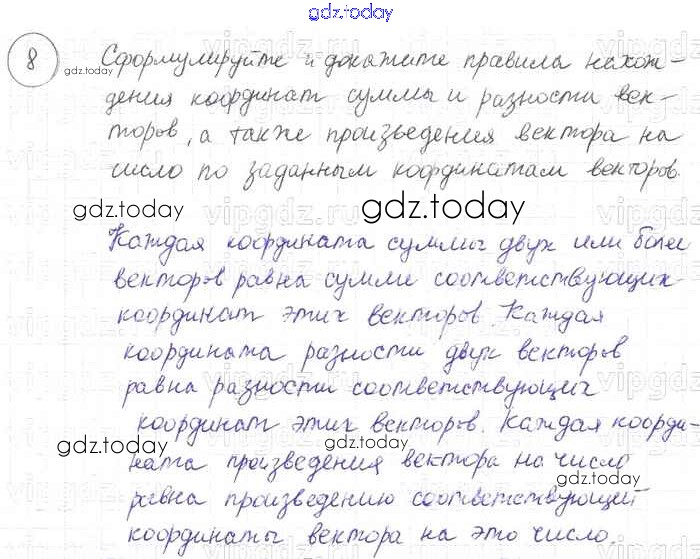 gdz.today
8 Сформулируйте и докажите правила нахож-
gdz.today
дения координат суммы и разности век-
торов, а также произведения вектора на
число по заданным координатам векторов.
gdz.today gdz.today
Каждая координата суммы двух или более
векторов равна сумме соответствующих
координат этих векторов. Каждая
координата разности двух векторов
равна разности соответствующих
координат этих векторов. Каждая коорди-
gdz.today gdz.today
ната произведения вектора на число
равна произведению соответствующей
gdz.today
координаты вектора на это число.